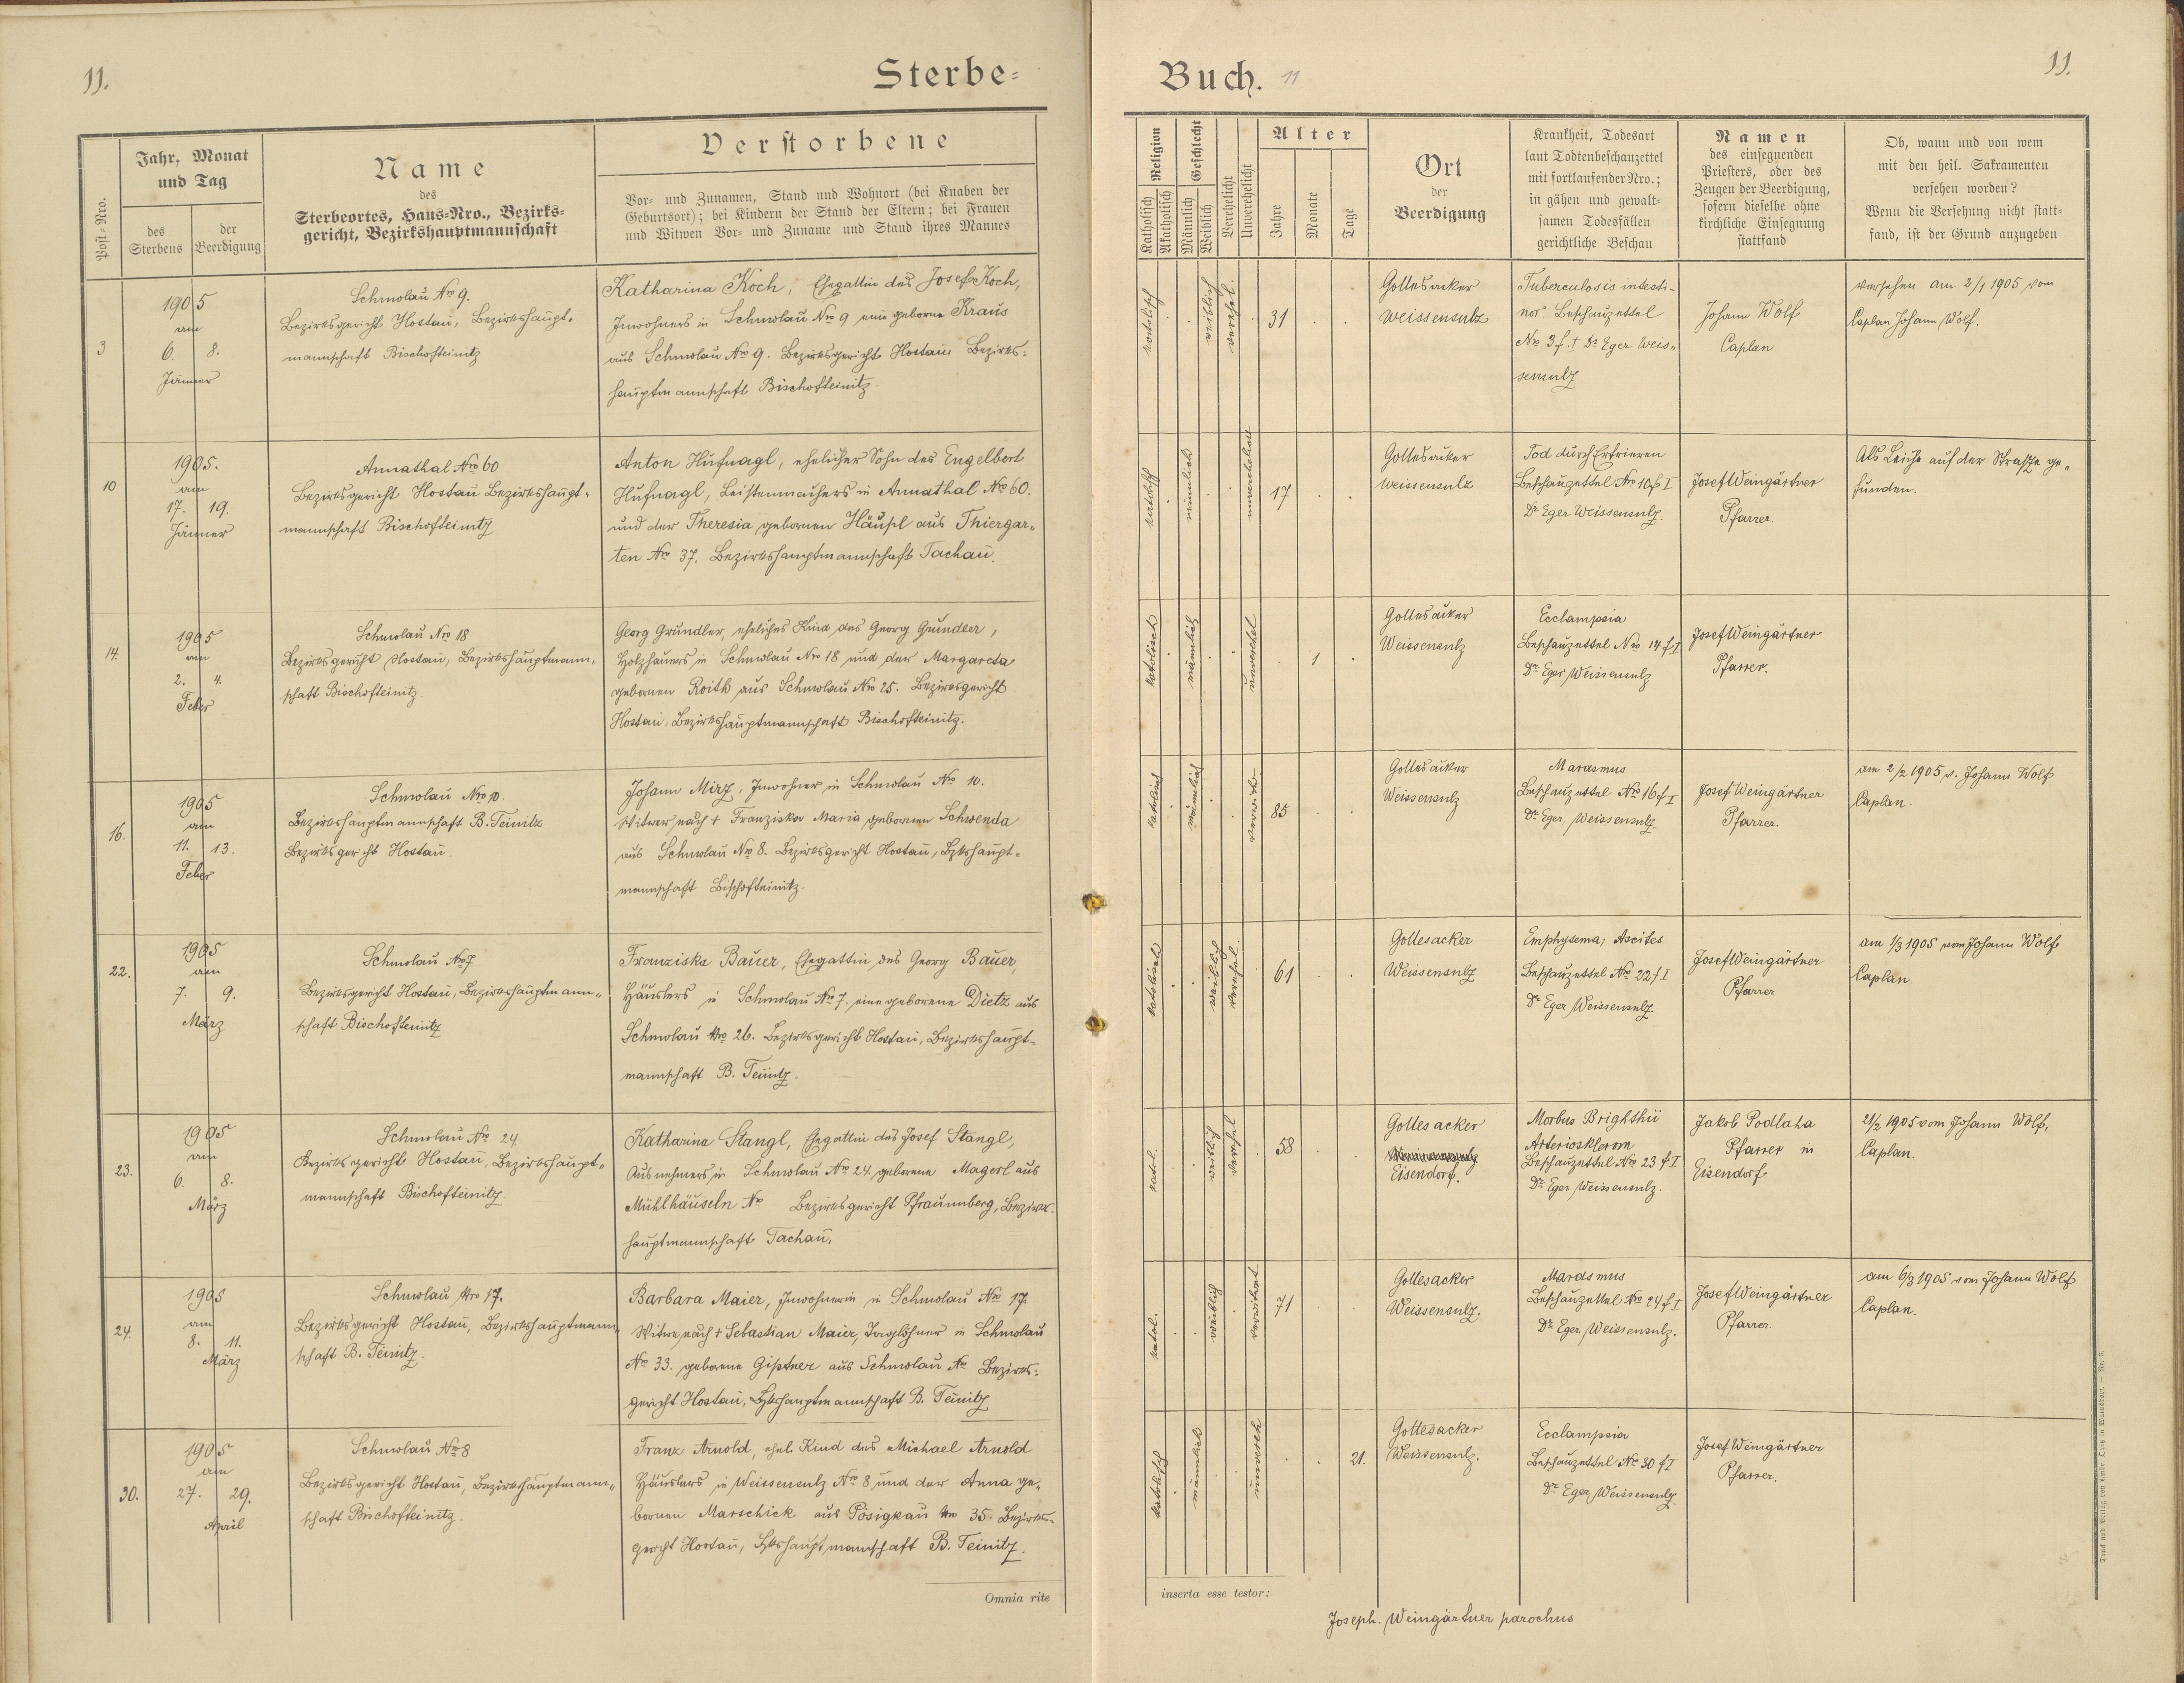 11.
Sterbe=
Buch. 11
11.
Post-Nro.
Jahr, Monat
und Tag
des
Sterbens
der
Beerdigung
Name
des
Sterbeortes, Haus-Nro., Bezirks-
gericht, Bezirkshauptmannschaft
Verstorbene
Vor- und Zunamen, Stand und Wohnort (bei Knaben der
Geburtsort); bei Kindern der Stand der Eltern; bei Frauen
und Witwen Vor- und Zuname und Stand ihres Mannes
Religion
Katholisch
Akatholisch
Geschlecht
Männlich
Weiblich
Verehelicht
Unverehelicht
Alter
Jahre
Monate
Tage
Ort
der
Beerdigung
Krankheit, Todesart
laut Todtenbeschauzettel
mit fortlaufender Nro.;
in gähen und gewalt-
samen Todesfällen
gerichtliche Beschau
Namen
des einsegnenden
Priesters, oder des
Zeugen der Beerdigung,
sofern dieselbe ohne
kirchliche Einsegnung
stattfand
Ob, wann und von wem
mit den heil. Sakramenten
versehen worden?
Wenn die Versehung nicht statt-
fand, ist der Grund anzugeben
3
1905
am
6. 8.
Jänner
Schmolau No 9.
Bezirksgericht Hostau, Bezirkshaupt-
mannschaft Bischofteinitz
Katharina Koch, Ehegattin des Josef Koch,
Inwohners in Schmolau No 9 eine geborne Kraus
aus Schmolau No 9. Bezirksgericht Hostau Bezirks-
hauptmannschaft Bischofteinitz.
katolisch
weiblich
verehel.
31
Gottesacker
Weissensulz
Tuberculosis intesti-
nor. Beschauzettel
No 3 f. I Dr Eger Weis-
sensulz
Johann Wolf
Caplan
versehen am 2/1 1905 vom
Caplan Johann Wolf.
10
1905.
am
17. 19.
Jänner
Annathal No 60
Bezirksgericht Hostau Bezirkshaupt-
mannschaft Bischofteinitz
Anton Hufnagl, ehelicher Sohn des Engelbert
Hufnagl, Leistenmachers in Annathal No 60.
und der Theresia gebornen Häupl aus Thiergar-
ten No 37. Bezirkshauptmannschaft Tachau.
katolisch
männlich
unverehelicht
17
Gottesacker
Weissensulz
Tod durch Erfrieren
Beschauzettel No 10 f I
Dr Eger Weissensulz.
Josef Weingärtner
Pfarrer.
Als Leiche auf der Straße ge-
funden.
14.
1905
am
2. 4.
Feber
Schmolau Nro 18
Bezirksgericht Hostau, Bezirkshauptmann-
schaft Bischofteinitz.
Georg Gründler, eheliches Kind des Georg Gründler,
Holzhauers in Schmolau Nro 18 und der Margareta
gebornen Roith aus Schmolau No 25. Bezirksgericht
Hostau. Bezirkshauptmannschaft Bischofteinitz.
katolisch
männlich
unverehel
1
Gottesacker
Weissensulz
Ecclampsia
Beschauzettel Nro 14 f I
Dr Eger Weissensulz
Josef Weingärtner
Pfarrer.
16.
1905
am
11. 13.
Feber
Schmolau Nro 10.
Bezirkshauptmannschaft B. Teinitz
Bezirksgericht Hostau.
Johann Mirz, Inwohner in Schmolau No 10.
Witwer nach † Franziska Maria gebornen Schwenda
aus Schmolau No 8. Bezirksgericht Hostau, Bzkshaupt-
mannschaft Bischofteinitz.
katolisch
männlich
verwitw.
85
Gottesacker
Weissensulz
Marasmus
Beschauzettel No 16 f I
Dr Eger, Weissensulz.
Josef Weingärtner
Pfarrer.
am 2/2 1905 v. Johann Wolf
Caplan.
22.
1905
am
7. 9.
März
Schmolau No 7
Bezirksgericht Hostau, Bezirkshauptmann-
schaft Bischofteinitz
Franziska Bauer, Ehegattin des Georg Bauer,
Häuslers in Schmolau No 7. eine geborene Dietz aus
Schmolau Nro 26. Bezirksgericht Hostau, Bezirkshaupt-
mannschaft B. Teinitz.
katolisch
weiblich
verehel.
61
Gottesacker
Weissensulz
Emphysema; Ascites
Beschauzettel No 22 f I
Dr Eger Weissensulz.
Josef Weingärtner
Pfarrer
am 1/3 1905 vom Johann Wolf
Caplan.
23.
1905
am
6. 8.
März
Schmolau No 24
Bezirksgericht Hostau, Bezirkshaupt-
mannschaft Bischofteinitz.
Katharina Stangl, Ehegattin des Josef Stangl,
Ausnehmers in Schmolau No 24, geborene Magerl aus
Mühlhäuseln No Bezirksgericht Pfraumberg, Bezirks-
hauptmannschaft Tachau.
katol.
weiblich
verehel
58
Gottesacker
Eisendorf.
Morbus Brighthii
Arteriosklerom
Beschauzettel No 23 f I
Dr Eger Weissensulz.
Jakob Podlaha
Pfarrer in
Eisendorf
21/2 1905 vom Johann Wolf,
Caplan.
24.
1905
am
8. 11.
März
Schmolau Nro 17.
Bezirksgericht Hostau, Bezirkshauptmann-
schaft B. Teinitz.
Barbara Maier, Inwohnerin in Schmolau No 17.
Witwe nach † Sebastian Maier, Taglöhner in Schmolau
No 33. geborene Giptner aus Schmolau No Bezirks-
gericht Hostau, Bzkshauptmannschaft B. Teinitz
katol.
weiblich
verwitwet
71
Gottesacker
Weissensulz.
Marasmus
Beschauzettel No 24 f I
Dr Eger Weissensulz.
Josef Weingärtner
Pfarrer
am 6/3 1905 vom Johann Wolf
Caplan.
30.
1905
am
27. 29.
April
Schmolau No 8
Bezirksgericht Hostau, Bezirkshauptmann-
schaft Bischofteinitz.
Franz Arnold, ehel. Kind des Michael Arnold
Häuslers in Weissensulz No 8 und der Anna ge-
bornen Marschick aus Pösigkau Nro 35. Bezirks-
gericht Hostau, Bzkshauptmannschaft B. Teinitz.
katolisch
männlich
unvereh
21.
Gottesacker
Weissensulz.
Ecclampsia
Beschauzettel No 30 f I
Dr Eger, Weissensulz.
Josef Weingärtner
Pfarrer.
Omnia rite
inserta esse testor:
Joseph. Weingärtner parochus